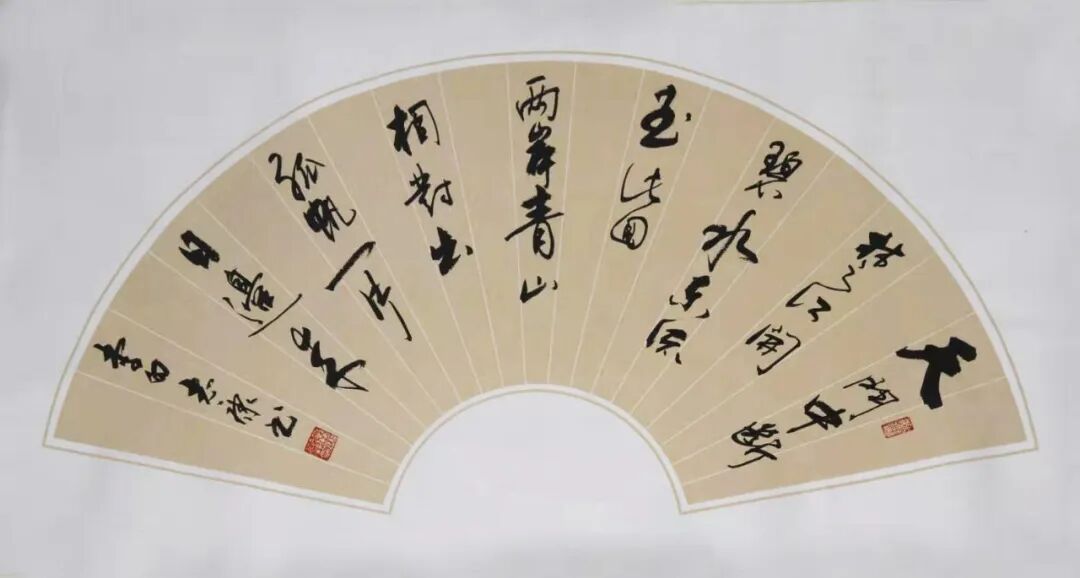 天門中断
楚江開
碧水东流
至此回
两岸青山
相對出
孤帆一片
日邊来
李白 书